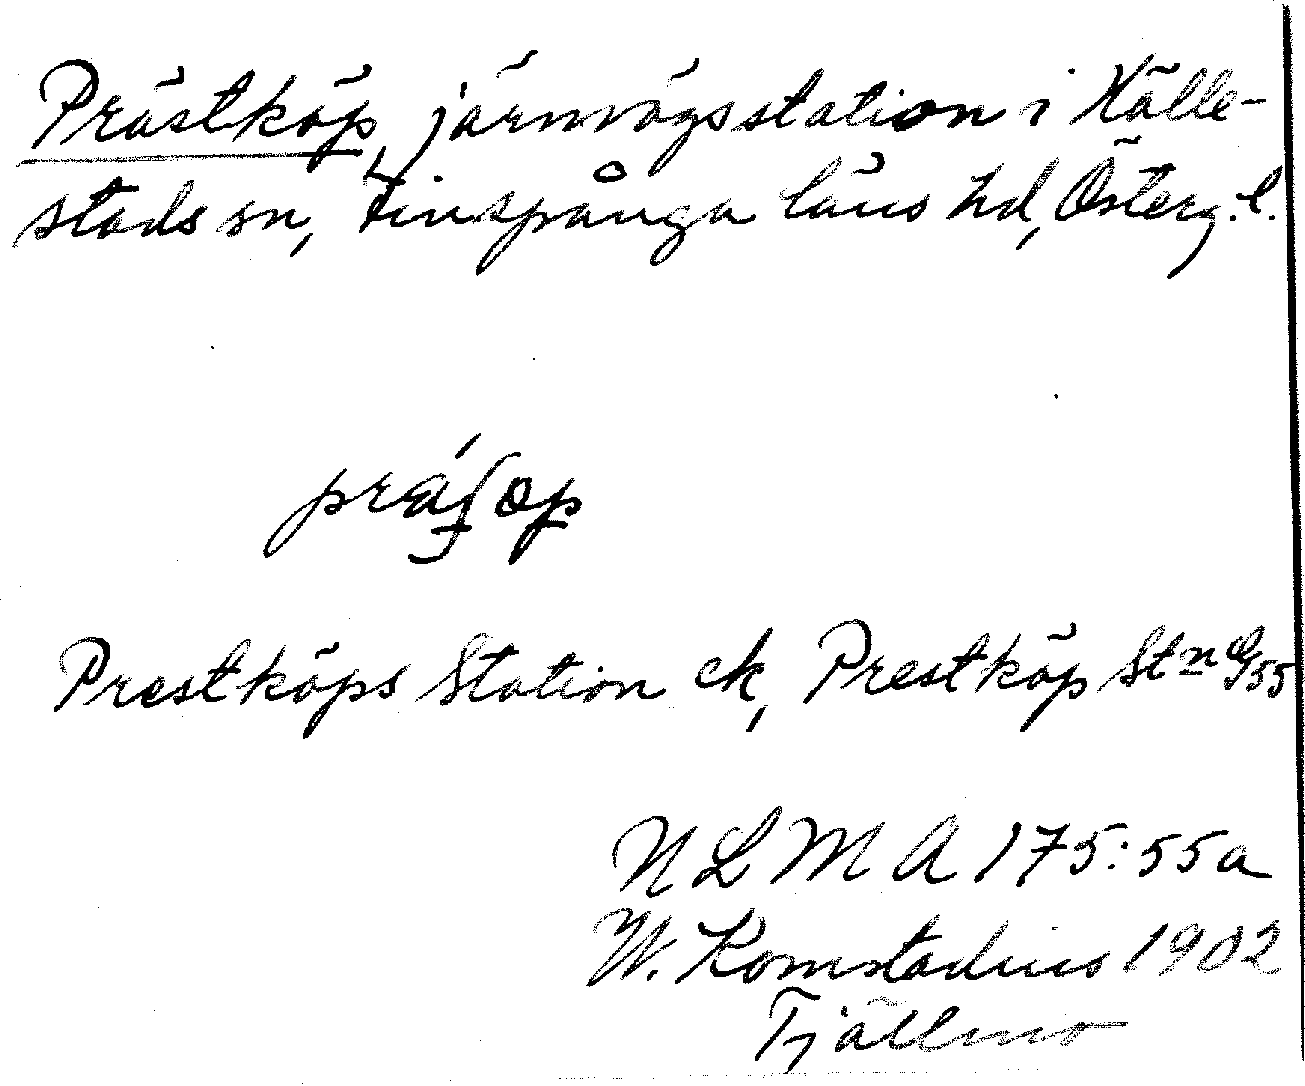 Prästköp, järnvägsstation i Hälle-
stads sn, Finspånga läns hd, Österg. l.
Prestköps Station ek, Prestköp Stn G55
N L M A 175:55a
W. Komstadius 1902
Tjällmo